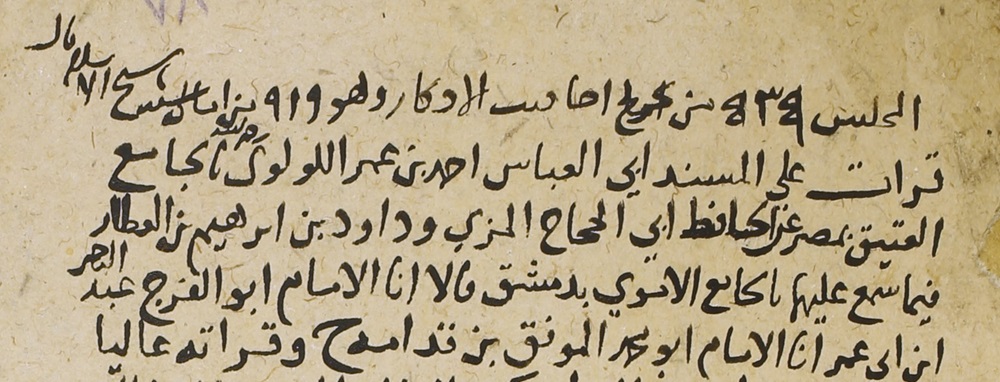 المجلس ٩٣٩ من تخريج احاديث الاذكار وهو ٩١٩ من امالي شيخ الاسلام قال
قرات على المسند ابي العباس احمد بن عمر اللولوي بالجامع
العتيق بمصر عن الحافظ ابي الحجاج المزي وداود بن ابرهيم بن العطار
فيما سمع عليهما بالجامع الاموي بدمشق قالا انا الامام ابو الفرج عبد الرحمن
ابن ابي عمر انا الامام ابو محمد الموفق بن قدامة ح وقراته عاليا